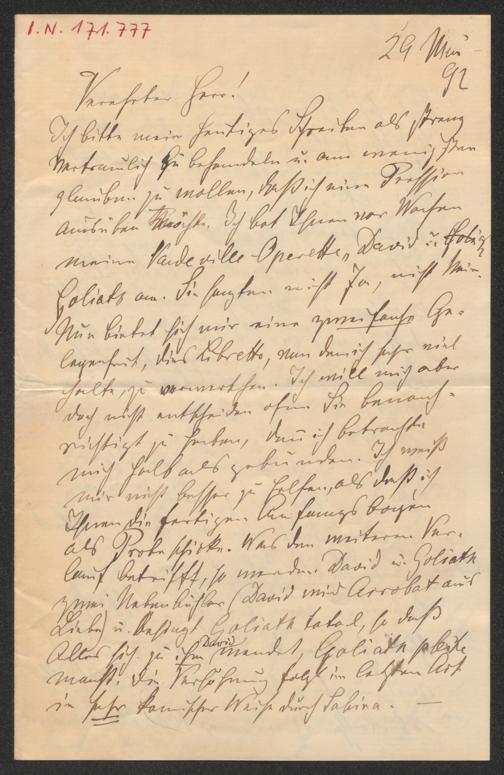 I. N. 171.777
29 Mai
92
Verehrter Herr!
Ich bitte mein heutiges Schreiben als streng
vertraulich zu behandeln u. am wenigsten
glauben zu wollen, daß ich eine Pression
ausüben möchte. Ich bot Ihnen vor Wochen
meine Vaudeville-Operette „David u.
Goliath an. Sie sagten nicht Ja, nicht Nein.
Nun bietet sich mir eine zweifache Ge-
legenheit, dies Libretto, von dem ich sehr viel
halte, zu verwerthen. Ich will mich aber
doch nicht entscheiden ohne Sie benach-
richtigt zu haben, denn ich betrachte
mich halb als gebunden. Ich weiß
mir nicht besser zu helfen, als daß ich
Ihnen die fertigen Anfangsbogen
als Probe schicke. Was den weiteren Ver-
lauf betrifft, so werden David u. Goliath
zwei Nebenbuhler (David wird Acrobat aus
Liebe) u. besiegt Goliath total, so daß
Alles sich zu David wendet, Goliath pleite
macht. Die Versöhnung folgt im letzten Act
in sehr komischer Weise durch Sabina. —